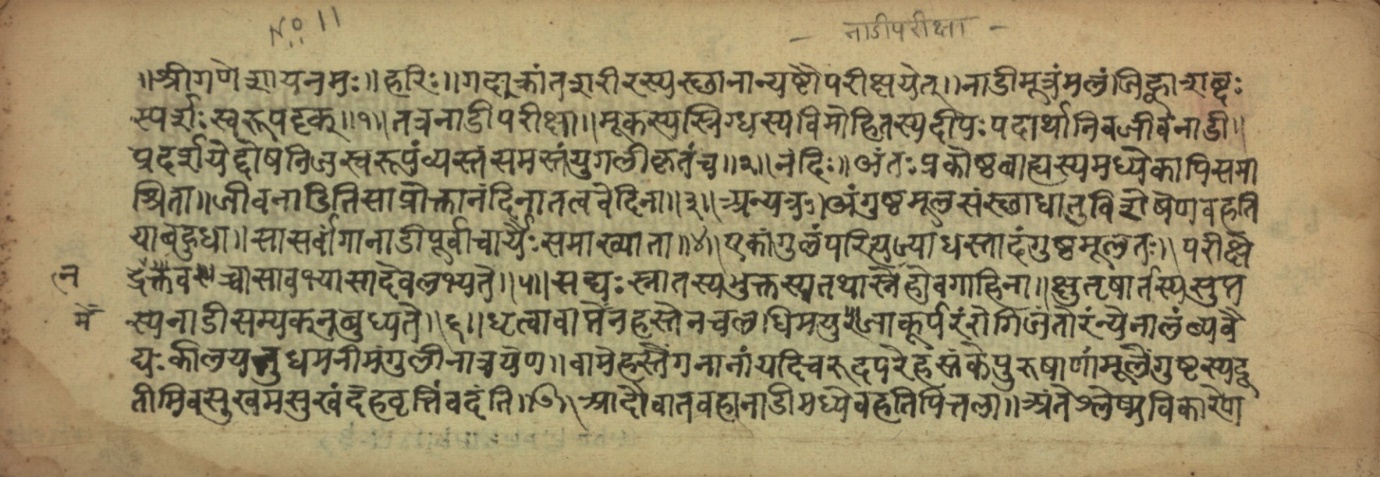 No 11
- नाडीपरीक्षा -
॥श्रीगणेशायनमः॥हरिः॥गदाक्रांतशरीरस्यस्छानान्यष्टौपरीक्षयेत्॥नाडीमूत्रंमलंजिह्वाशब्दः
स्पर्शःस्वरूपदृक्॥१॥तत्रनाडीपरीक्षा॥मूकस्यस्निग्धस्यविमोहितस्यदीपःपदार्थानिवजीवनाडी॥
प्रदर्शयेद्दोषनिजस्वरूपंव्यस्तंसमस्तंयुगलीकृतंच॥२॥नंदिः॥अंतःप्रकोष्ठबाह्यस्यमध्येकापिसमा
श्रिता॥जीवनाडितिसाप्रोक्तानंदिनातत्ववेदिना॥३॥अन्यत्रः॥अंगुष्ठमूलसंस्छाधातुविशेषेणवहति
याबहुधा॥सासर्वांगानाडीपूर्वाचार्यैःसमाख्याता॥४॥एकांगुलंपरित्यज्याधस्तादंगुष्ठमूलतः॥परीक्षे
सावभ्यासादेवलभ्यते॥५॥सद्यःस्नातस्यभुक्तस्यतथास्नेहावगाहिना॥क्षुत्तृषार्तस्यसुप्त
न
स्यनाडीसम्यक्नबुध्यते॥६॥धृत्वावामेनहस्तेन कूर्परंरोगिण
में
द्यः धमनीमंगुलीनांत्रयेण॥वामेहस्तेंगनानांयदि पुरुषाणांमूलेंगुष्टस्य
सुखमसुखंदेहवृत्तिंवदंति॥७॥आदौवातवहानाडीमध्येवहतिपित्तला॥अंतेश्लेष्मविकारेण